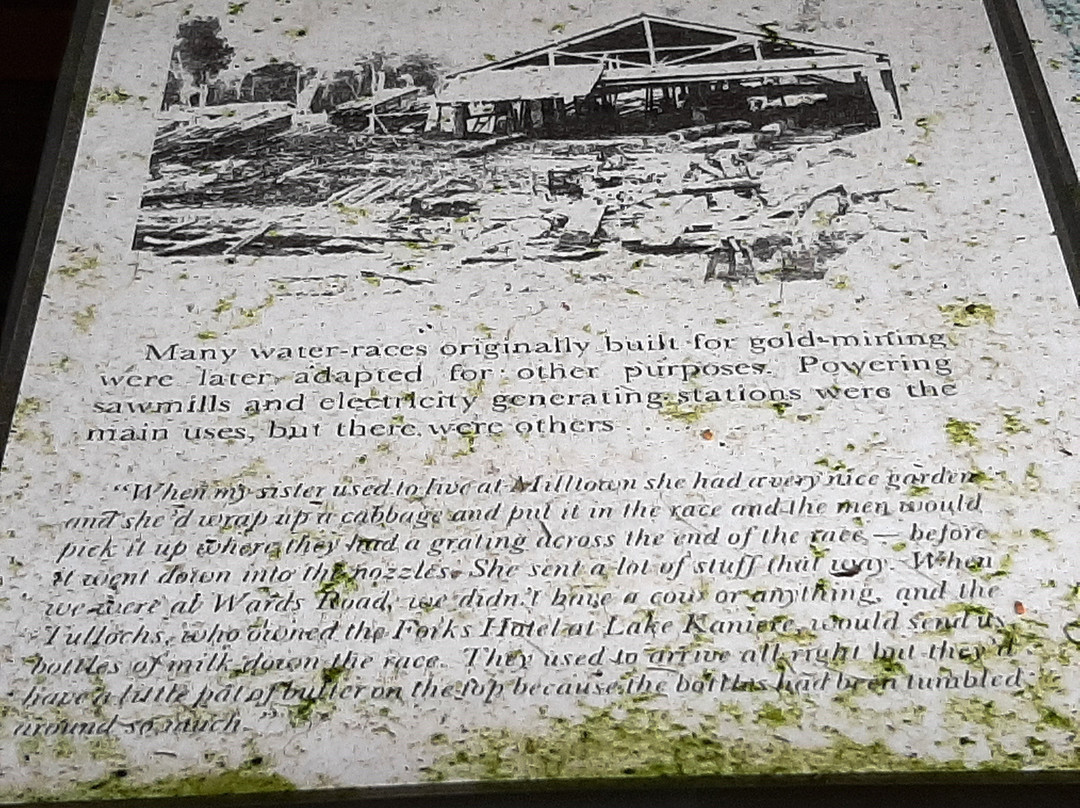 Many water-races originally built for gold-mining
were later adapted for other purposes. Powering
sawmills and electricity generating stations were the
main uses, but there were others . . .
"When my sister used to live at Milltown she had a very nice garden
and she'd wrap up a cabbage and put it in the race and the men would
pick it up where they had a grating across the end of the race — before
it went down into the nozzles. She sent a lot of stuff that way. When
we were at Wards Road, we didn't have a cow or anything, and the
Tullochs, who owned the Forks Hotel at Lake Kaniere, would send us
bottles of milk down the race. They used to arrive all right but they'd
have a little pat of butter on the top because the bottles had been tumbled
around so much."